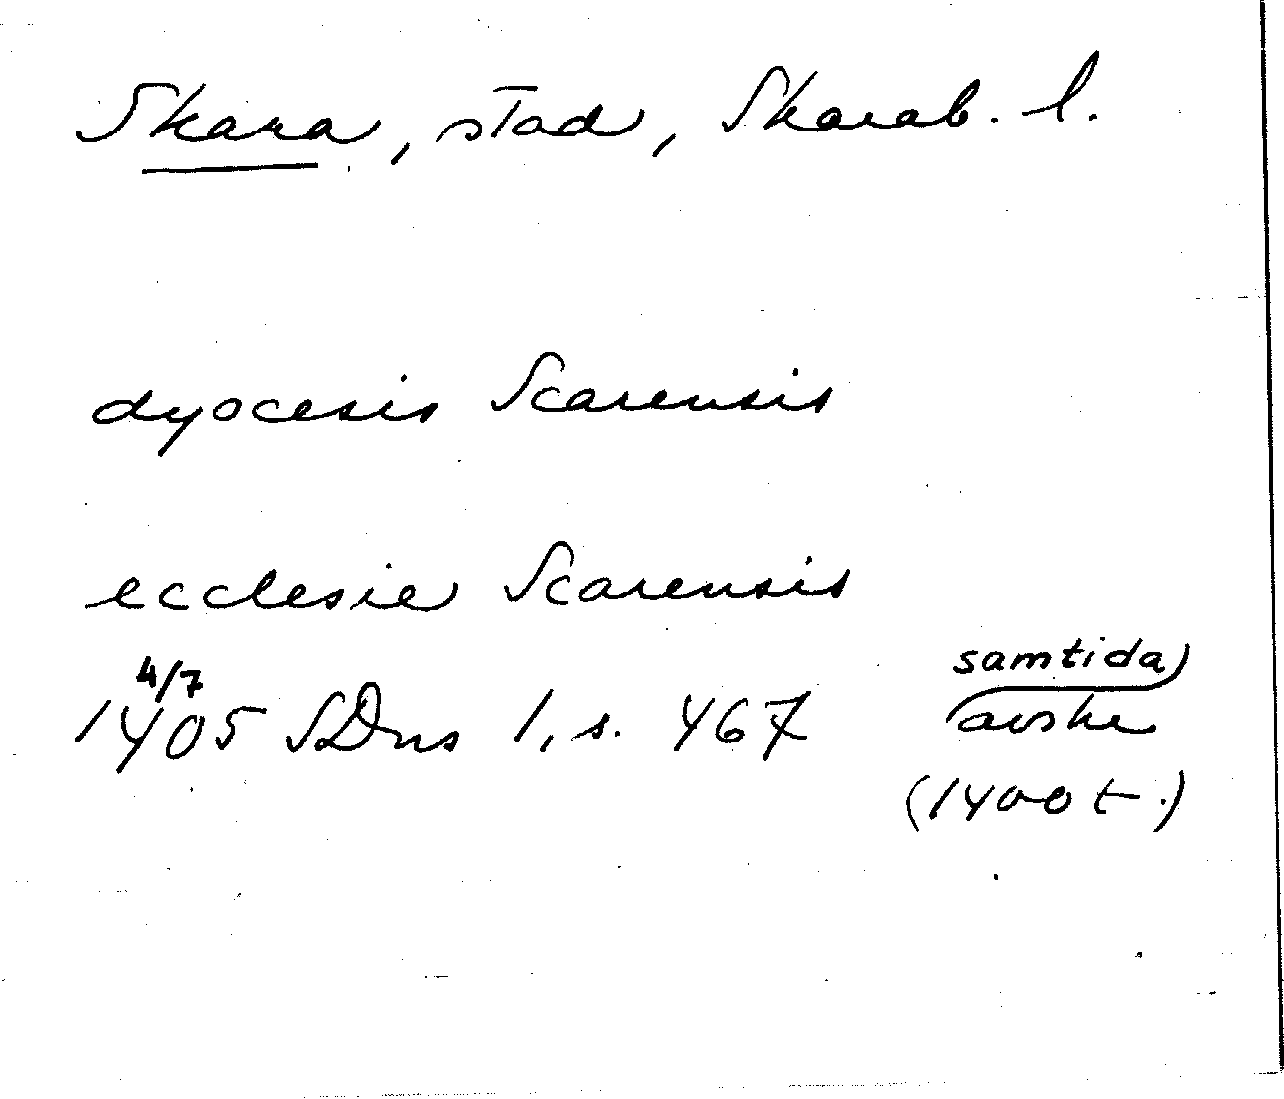 Skara, stad, Skarab. l.
dyocesis Scarensis
ecclesie Scarensis
4/7 samtida
1405 SDns 1, s. 467 avskr
(1400 t.)